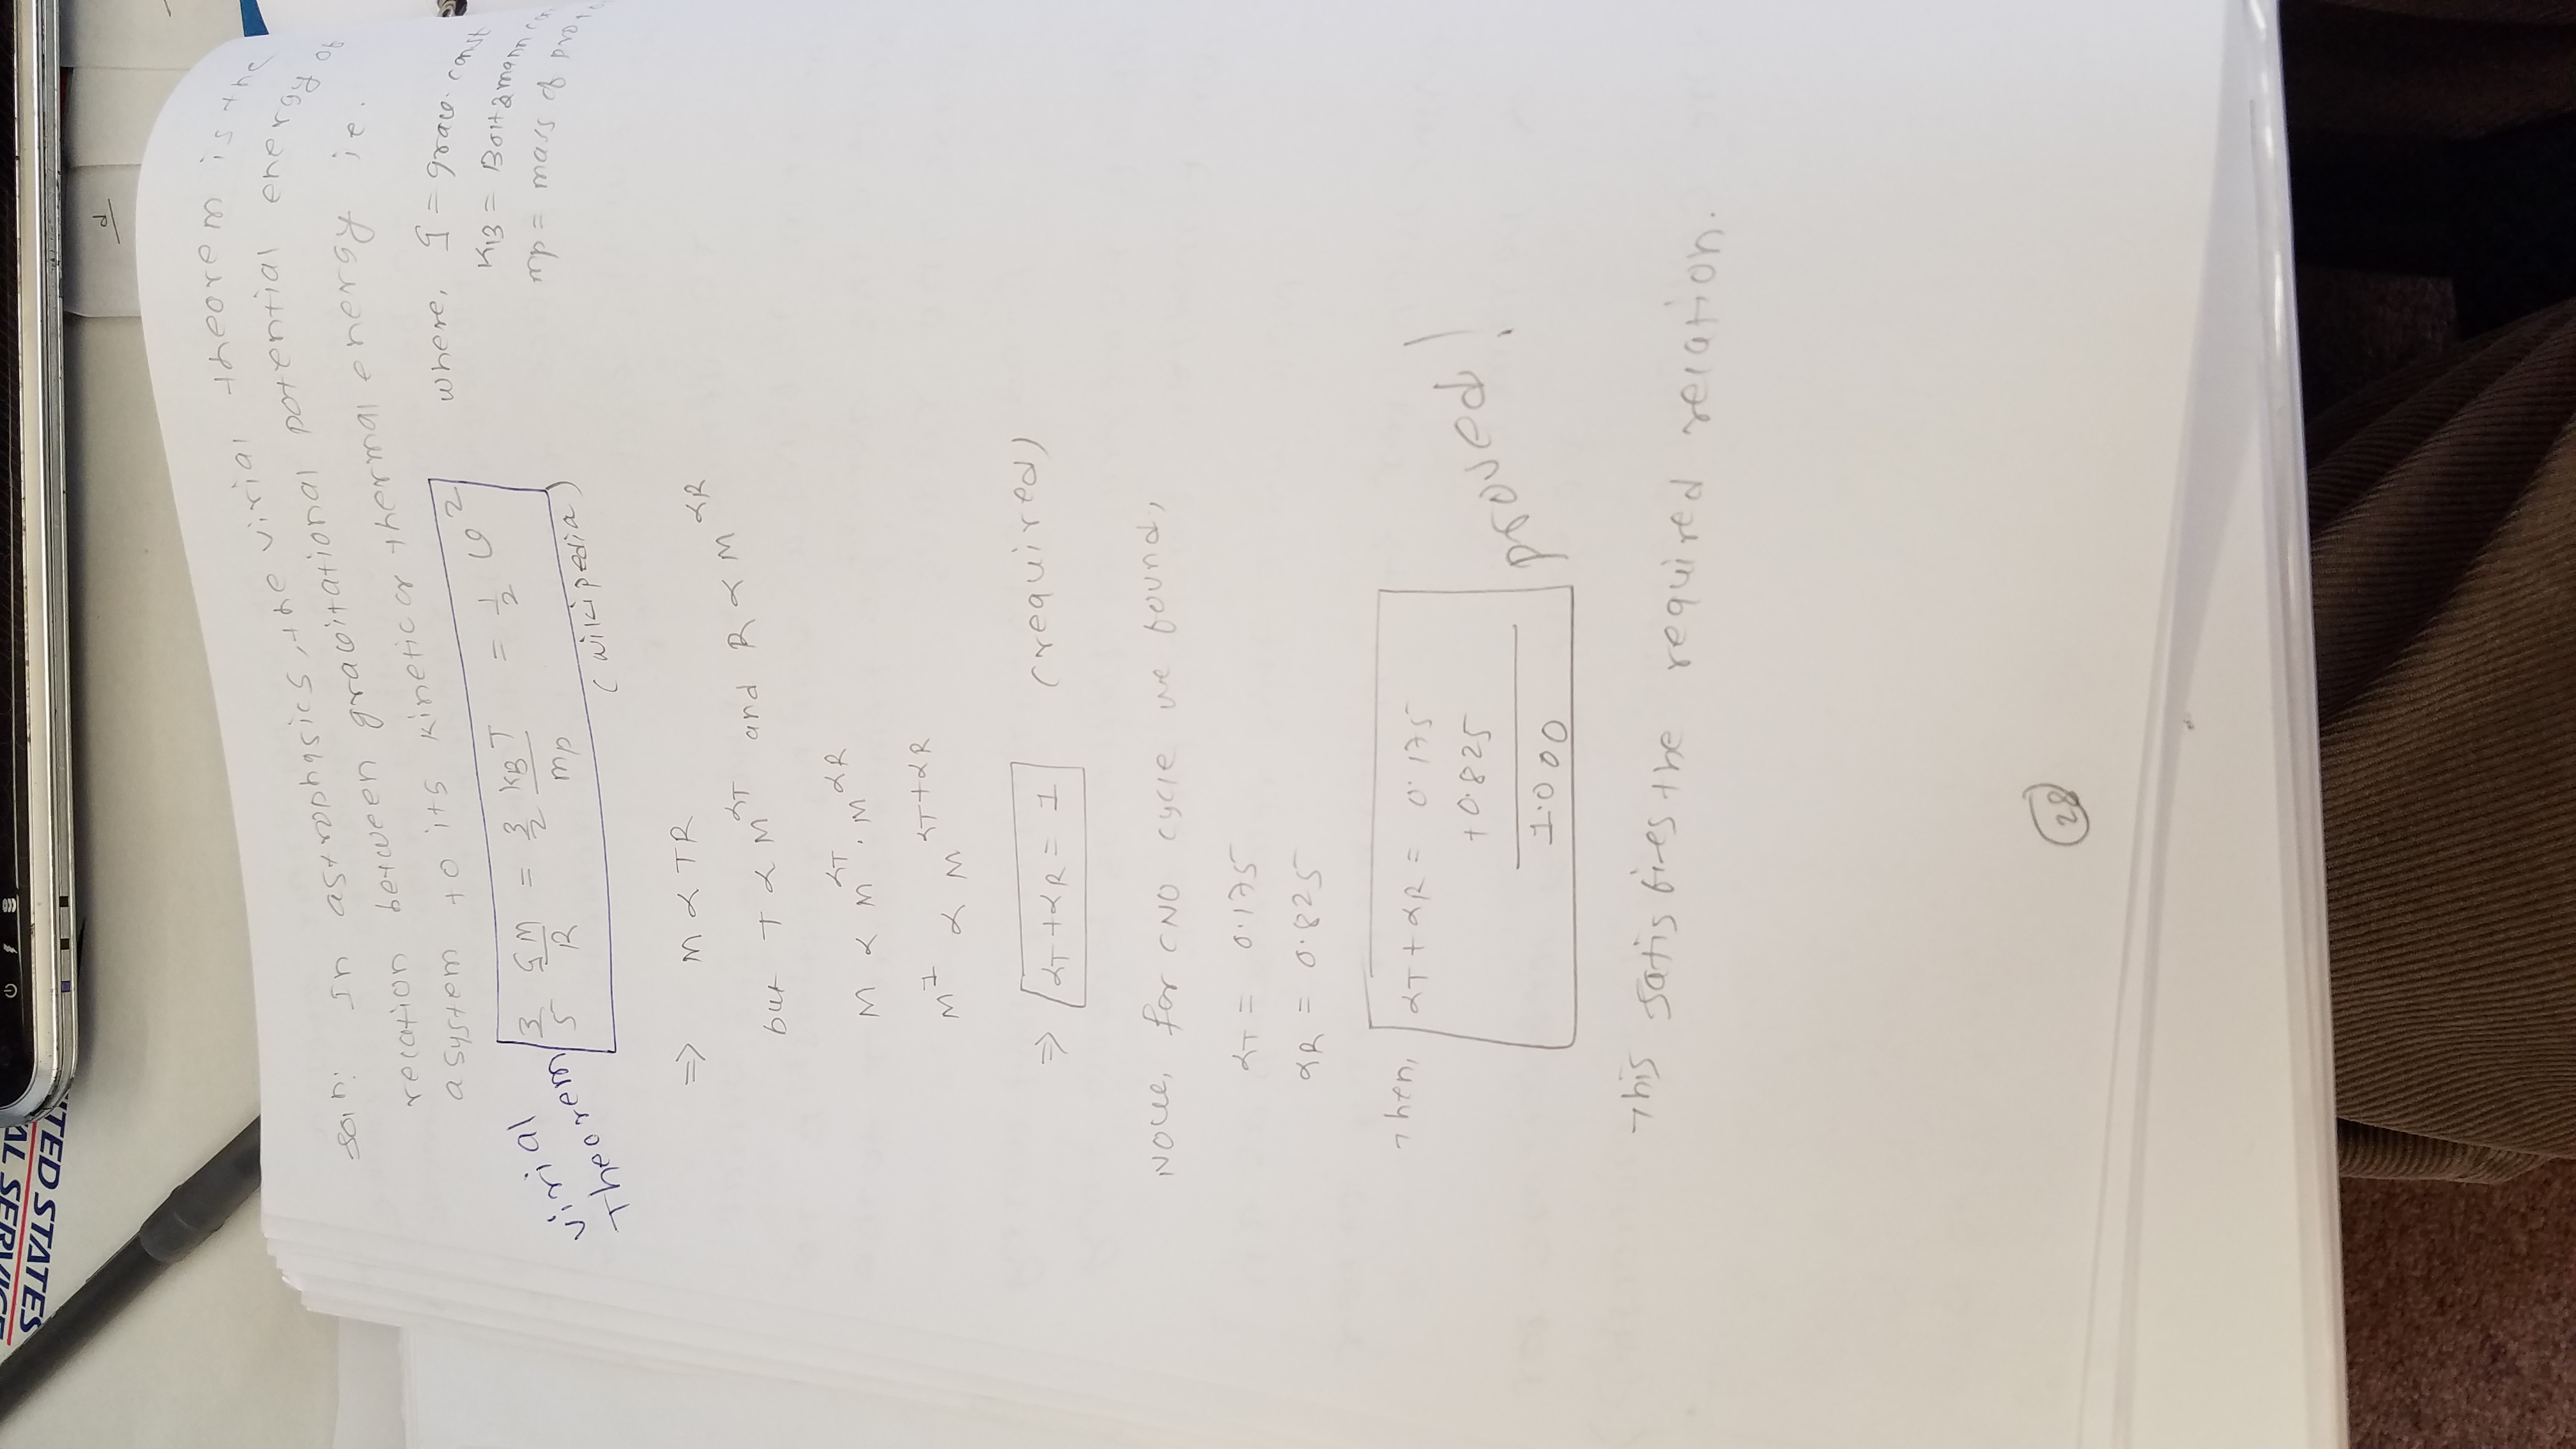 UNITED STATES
d
Soln: In astrophysics, the virial theorem is the
relation between gravitational potential energy of
a system to its kinetic or thermal energy ie.
virial Theorem
3/5 GM/R = 3/2 KBT/mp = 1/2 v²
(wikipedia)
where, G = grav. const
KB = Boltzmann
mp = mass of
⇒ M ∝ TR
but T ∝ M^αT and R ∝ M^αR
M ∝ M^αT . M^αR
M^1 ∝ M^αT+αR
⇒ αT + αR = 1 (required)
Now, for CNO cycle we found,
αT = 0.175
αR = 0.825
Then, αT + αR = 0.175
+0.825
1.000
proved!
This satisfies the required relation.
28